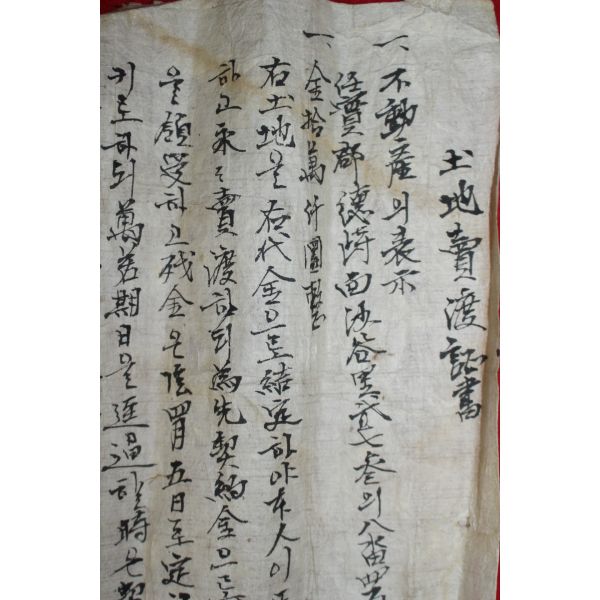 土地賣渡証書
一、不動産의表示
任實郡德峙面沙谷里貳七叁의八番
一、金拾萬 圜整
右土地을右代金으로結定하야本人이
하고永々賣渡하되爲先契約金으로
을領受하고残金은陰四月五日至定
키로하되萬若期日을進過할時은契